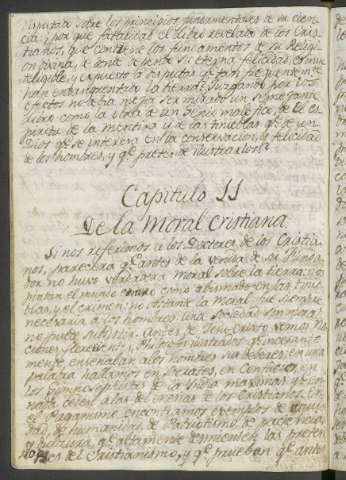 disputada sobre los principios fundamentales de su cien-
cia; por que fatalidad el Libro revelado de los Cris-
tianos, que contiene los fundamentos de su Religi-
on divina, de donde depende su eterna felicidad, es inin-
teligible, y expuesto a disputas qe. tan freqüentemte.
han ensangrentado la tierra? Juzgando por los
efectos no devia mejor ser mirado un semejante
libro como la obra de un genio malefico, de el es-
piritu de la mentira y de las tinieblas qe. de un
Dios qe. se interesa en la conservacion, y felicidad
de los hombres, y qe. pretende ilustrarlos?
Capitulo 11
De la Moral Cristiana.
Si nos referimos a los Doctores de los Cristia-
nos, parecerá qe. antes de la venida de su Funda-
dor no huvo verdadera moral sobre la tierra: nos
pintan el mundo entero como abismado en las tinie-
blas, y el crimen: no obstante la moral fue siempre
necesaria a los hombres: una sociedad sin moral
no puede subsistir. Antes de Jesu-Cristo vemos Na-
ciones florecientes, Filosofos ilustrados qe. incesante-
mente enseñaban a los hombres sus deberes; en una
palabra hallamos en Socrates, en Confucio, en
los Gymnosophistas de la India maximas qe. en
nada ceden a las del Mesias de los Cristianos. En
el Paganismo encontramos exemplos de equi-
dad, de humanidad, de Patriotismo, de paciencia,
y dulzura, qe. altamente desmienten las preten-
siones del Cristianismo, y qe. prueban qe. antes